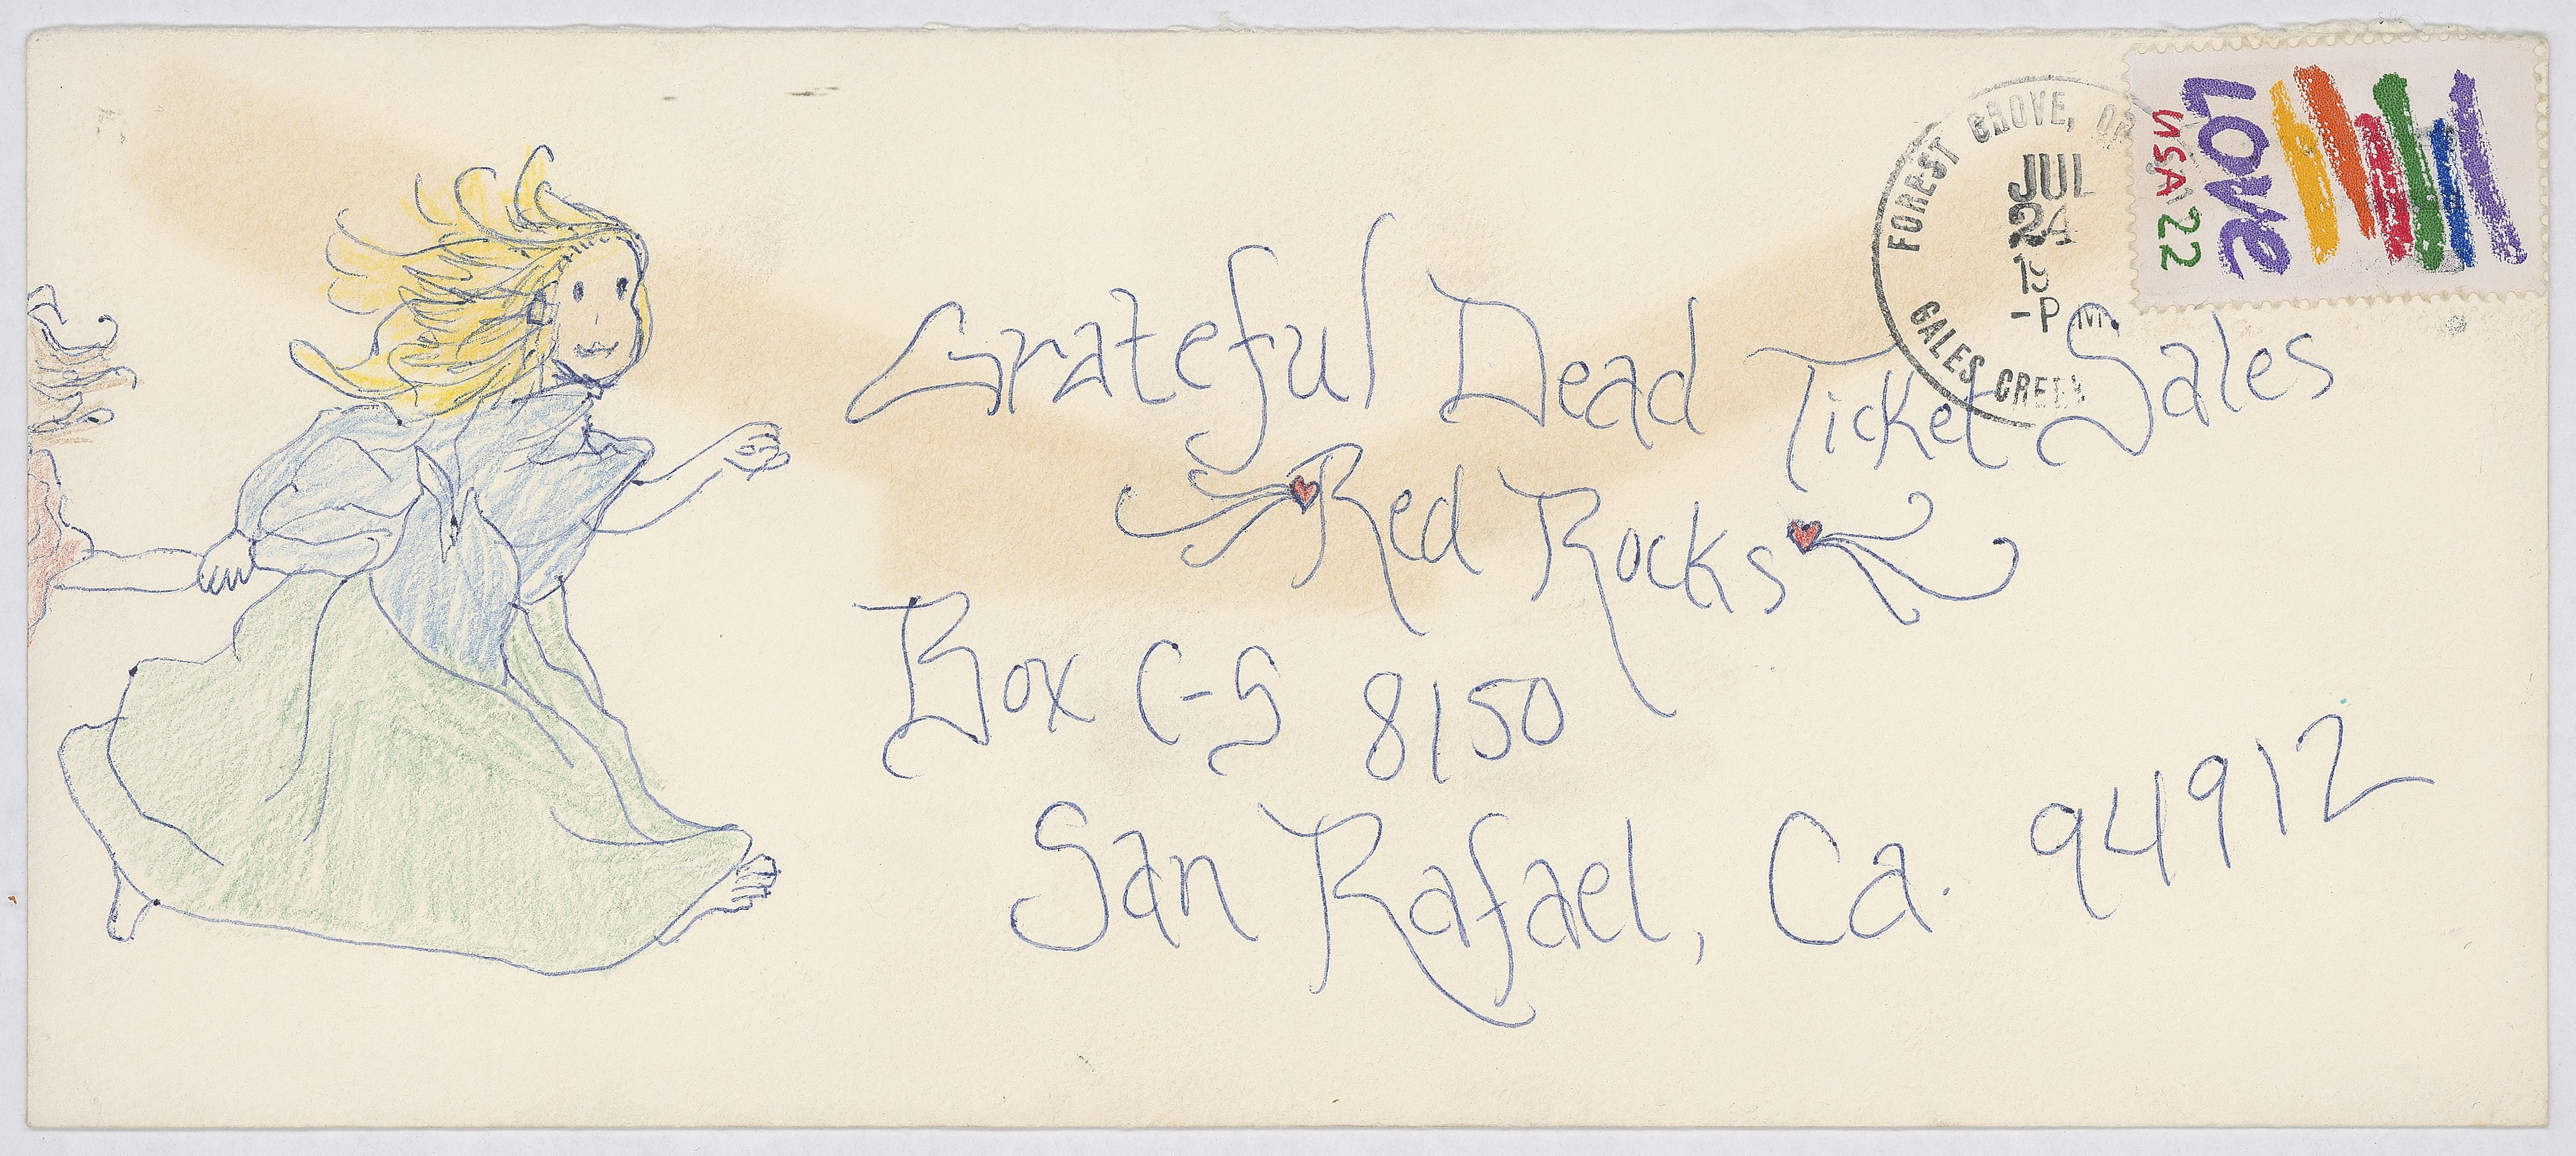 FOREST GROVE, OR
JUL
24
19
-PM
GALES CREEK
LOVE
USA 22
Grateful Dead Ticket Sales
Red Rocks
Box C-S 8150
San Rafael, Ca. 94912